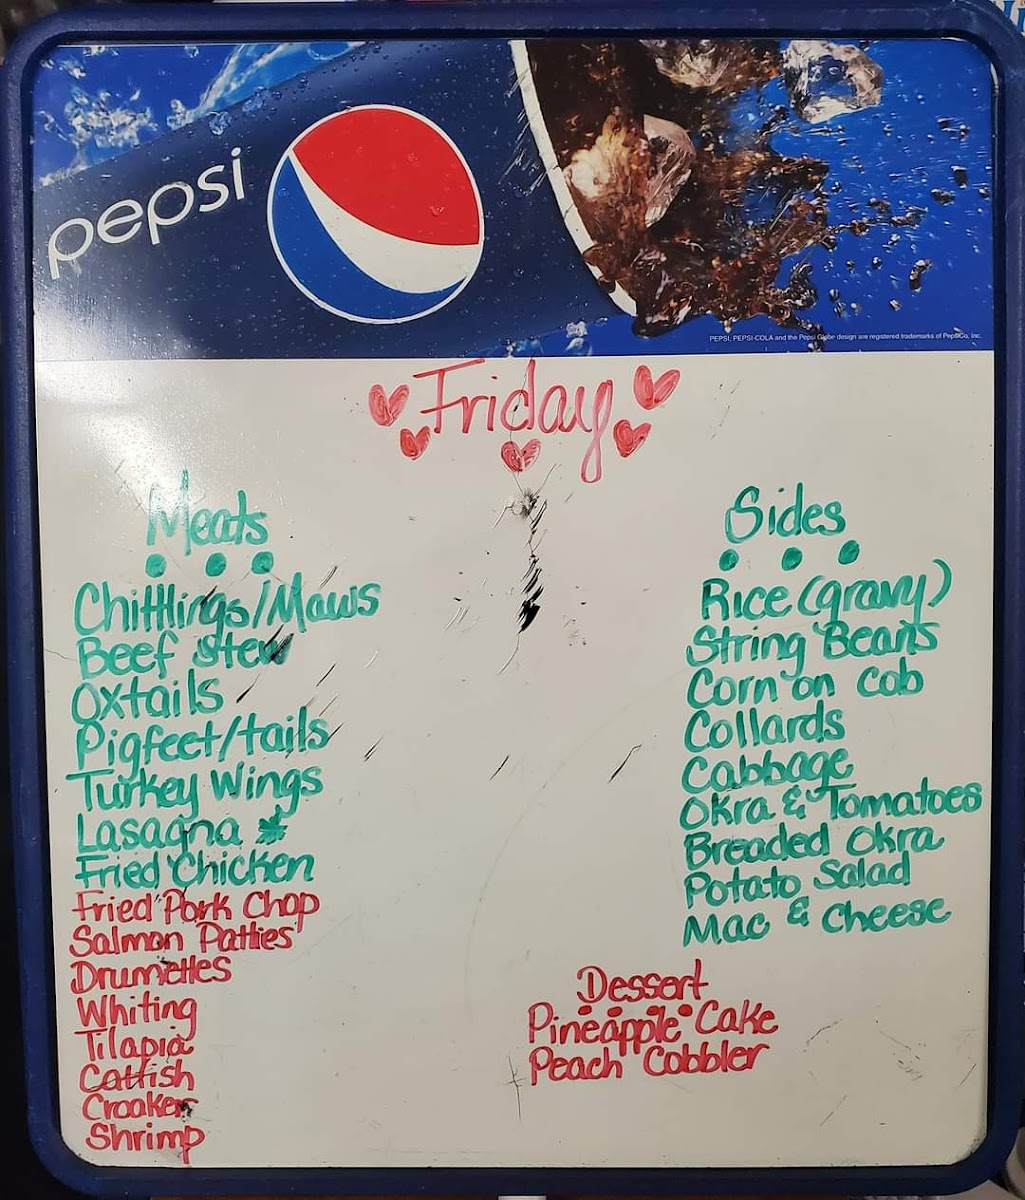 pepsi
PEPSI, PEPSI-COLA and the Pepsi Globe design are registered trademarks of PepsiCo, Inc.
Friday
Meats
Chittlings/Maws
Beef stew
Oxtails
Pigfeet/tails
Turkey Wings
Lasagna *
Fried Chicken
Fried Pork Chop
Salmon Patties
Drumettes
Whiting
Tilapia
Catfish
Croaker
Shrimp
Sides
Rice (gravy)
String Beans
Corn on cob
Collards
Cabbage
Okra & Tomatoes
Breaded Okra
Potato Salad
Mac & Cheese
Dessert
Pineapple Cake
Peach Cobbler